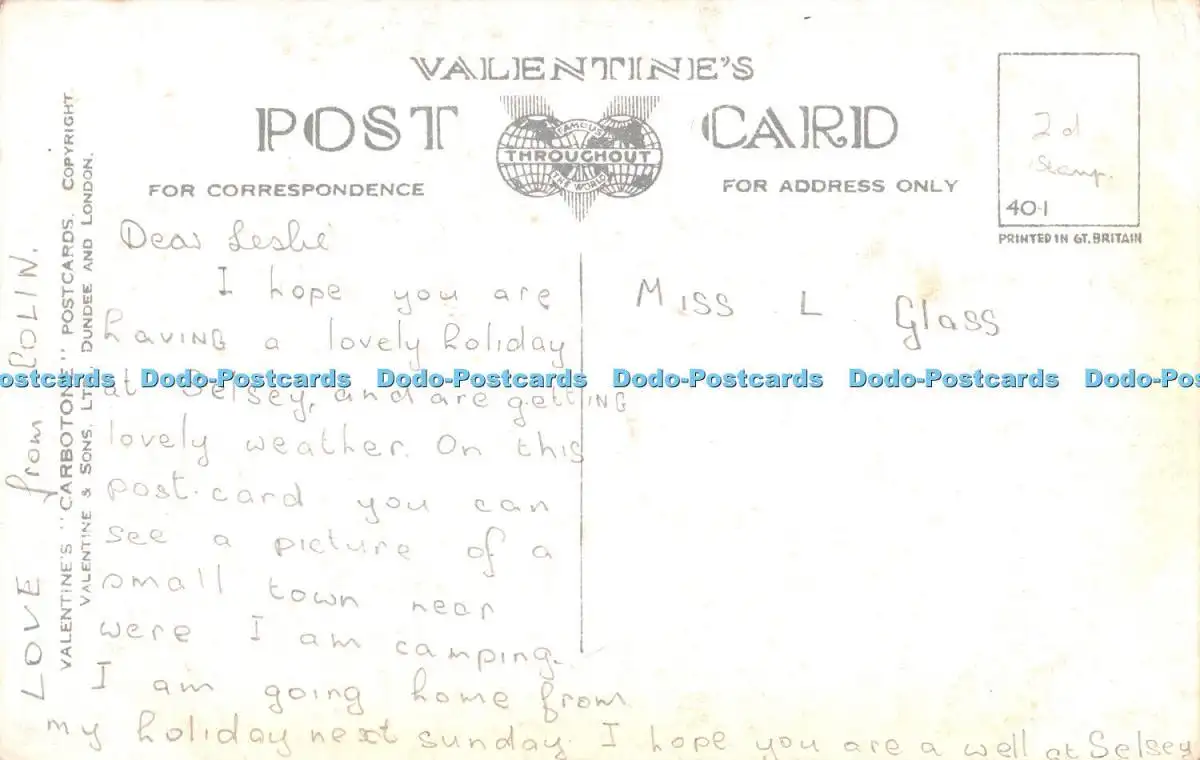 VALENTINE'S
POST CARD
FAMOUS
THROUGHOUT
THE WORLD
FOR CORRESPONDENCE
FOR ADDRESS ONLY
2d
Stamp.
40-1
PRINTED IN GT. BRITAIN
Dear Leslie
I hope you are
having a lovely holiday
at Selsey, and are getting
lovely weather. On this
post-card you can
see a picture of a
small town near
were I am camping.
I am going home from
my holiday next sunday. I hope you are a well at Selsey
LOVE from COLIN.
VALENTINE'S "CARBOTONE" POSTCARDS. COPYRIGHT
VALENTINE & SONS, LTD. DUNDEE AND LONDON.
Miss L Glass
ostcards Dodo-Postcards Dodo-Postcards Dodo-Postcards Dodo-Postcards Dodo-Pos